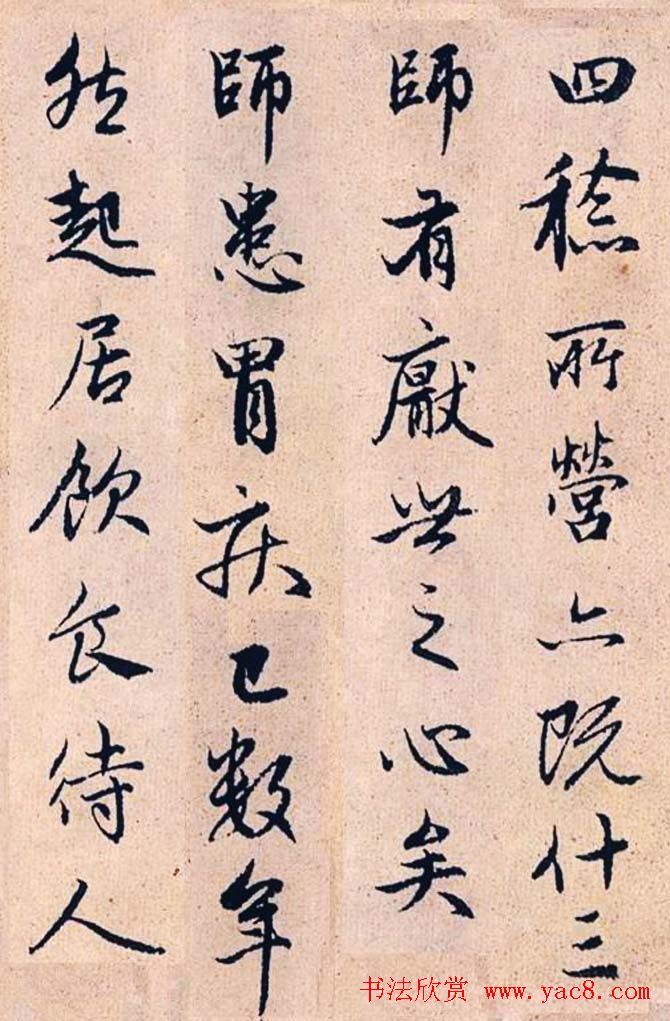 四稔所營亦既什三
師有厭世之心矣
師患胃疾已數年
然起居飲食待人
书法欣赏 www.yac8.com